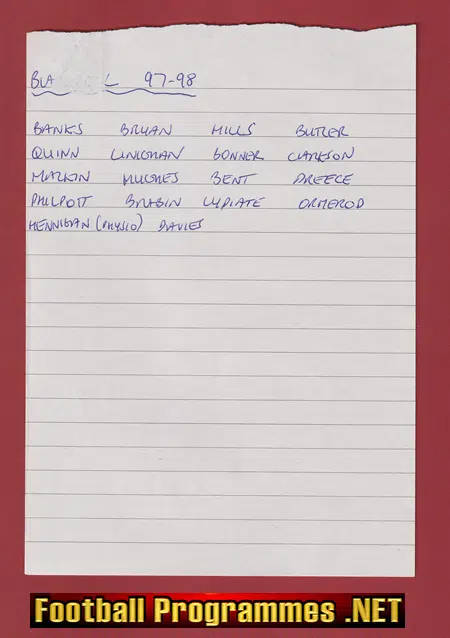 BLA L 97-98
BANKS BRYAN HILLS BUTLER
QUINN LINIGHAN BONNER CLARKSON
MALKIN HUGHES BENT PREECE
PHILPOTT BRABIN LYDIATE ORMEROD
HENNIGAN (PHYSIO) DAVIES
Football Programmes .NET